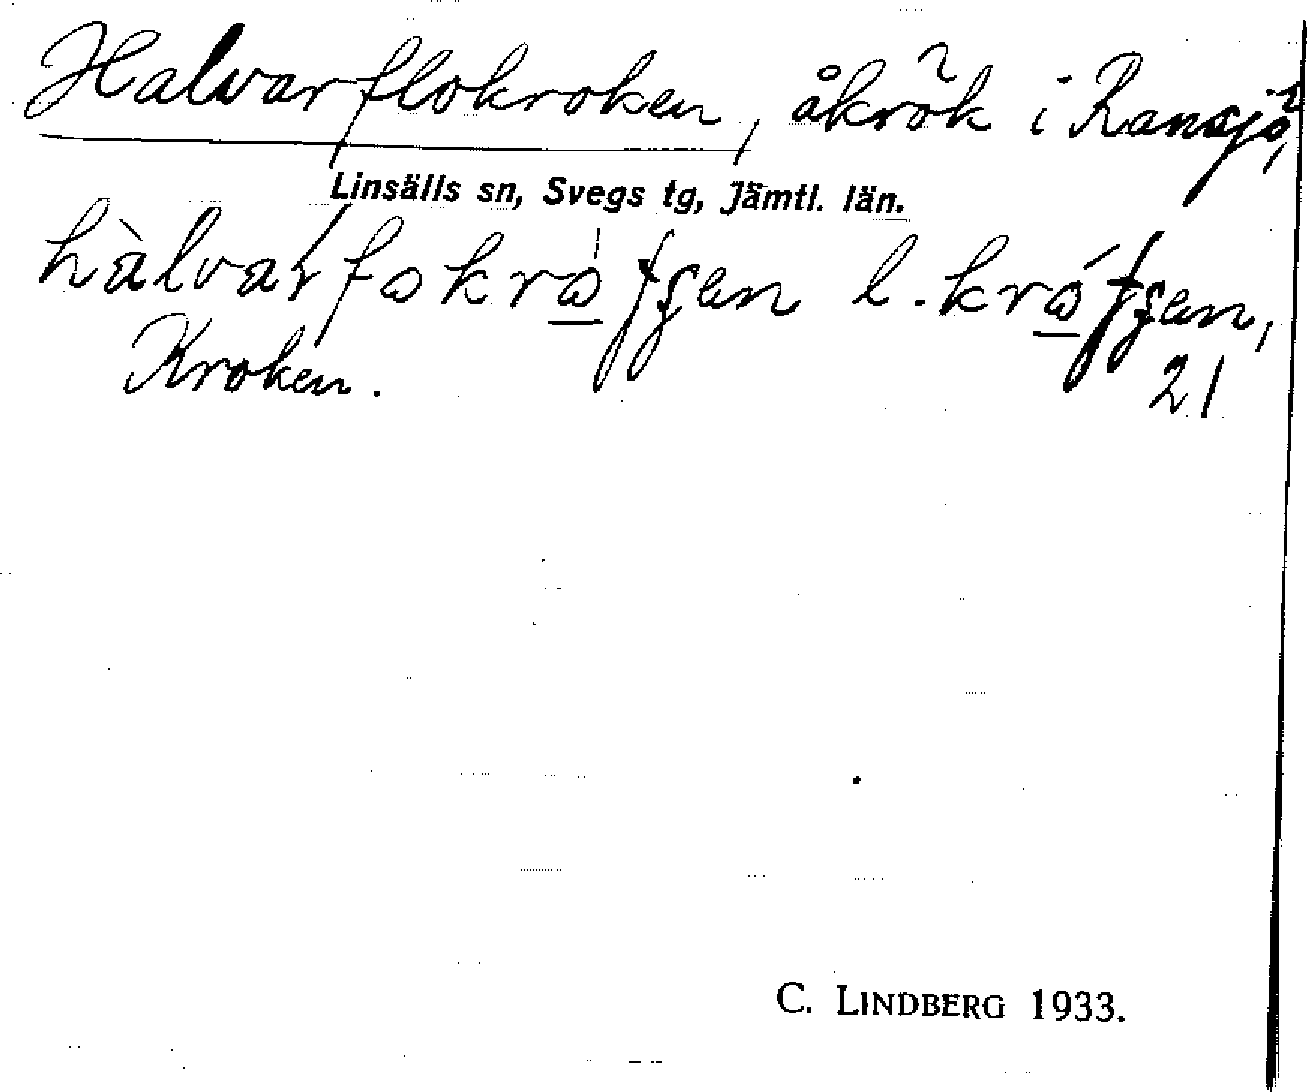 Halvarflokroken, åkrök i Ransjö,
Linsälls sn, Svegs tg, Jämtl. län.
l.
Kroken. 21
C. LINDBERG 1933.